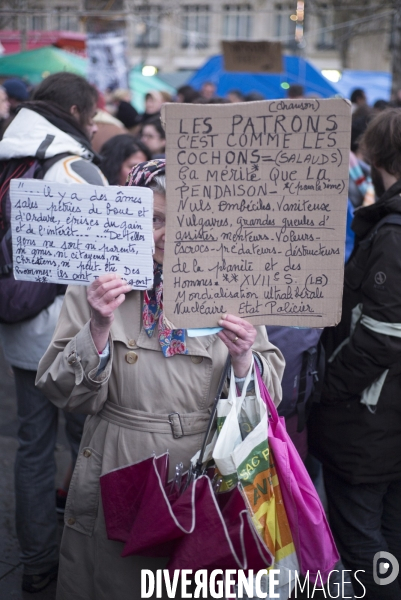 « il y a des âmes
sales pétries de boue et
d'ordure, éprises du gain
et de l'intérêt... " De telles
gens ne sont ni parents,
ni amis, ni citoyens, ni
chrétiens, ni peut-être des
hommes: ils ont
(chanson)
LES PATRONS
C'EST COMME LES
COCHONS = (SALAUDS)
ça mérite que La
PENDAISON - * (pour la rime)
Nuls, Ombéculs, Vaniteux
Vulgaires, grandes gueules d'
assistés menteurs - Voleurs -
Escrocs - prédateurs - destructeurs
de la planète et des
Hommes. ** XVIIe S. (LB)
Mondialisation ultralibérale
Nucléaire, Etat POLICIER
DIVERGENCE IMAGES
D